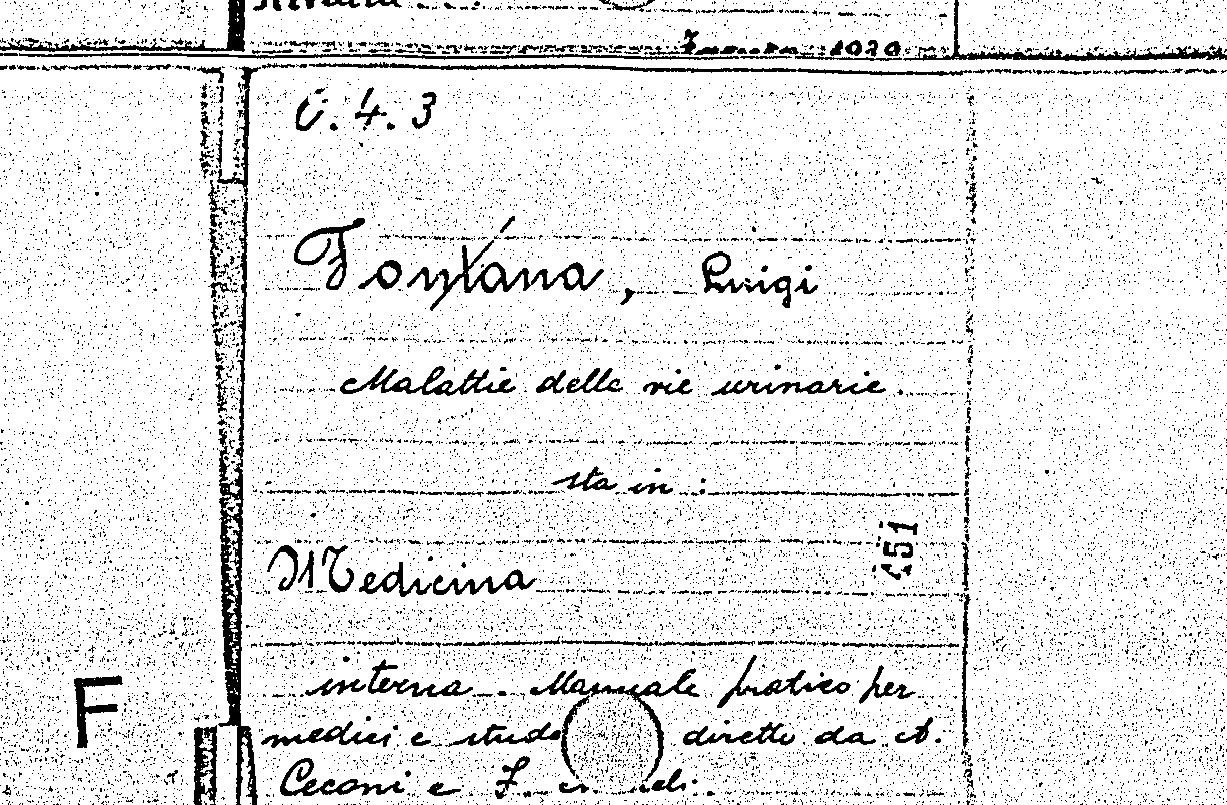 U.4.3
Fontana, Luigi
Malattie delle vie urinarie.
sta in :
451
Medicina
interna. Manuale pratico per
F
medici e stude diretto da A.
Ceconi e F.